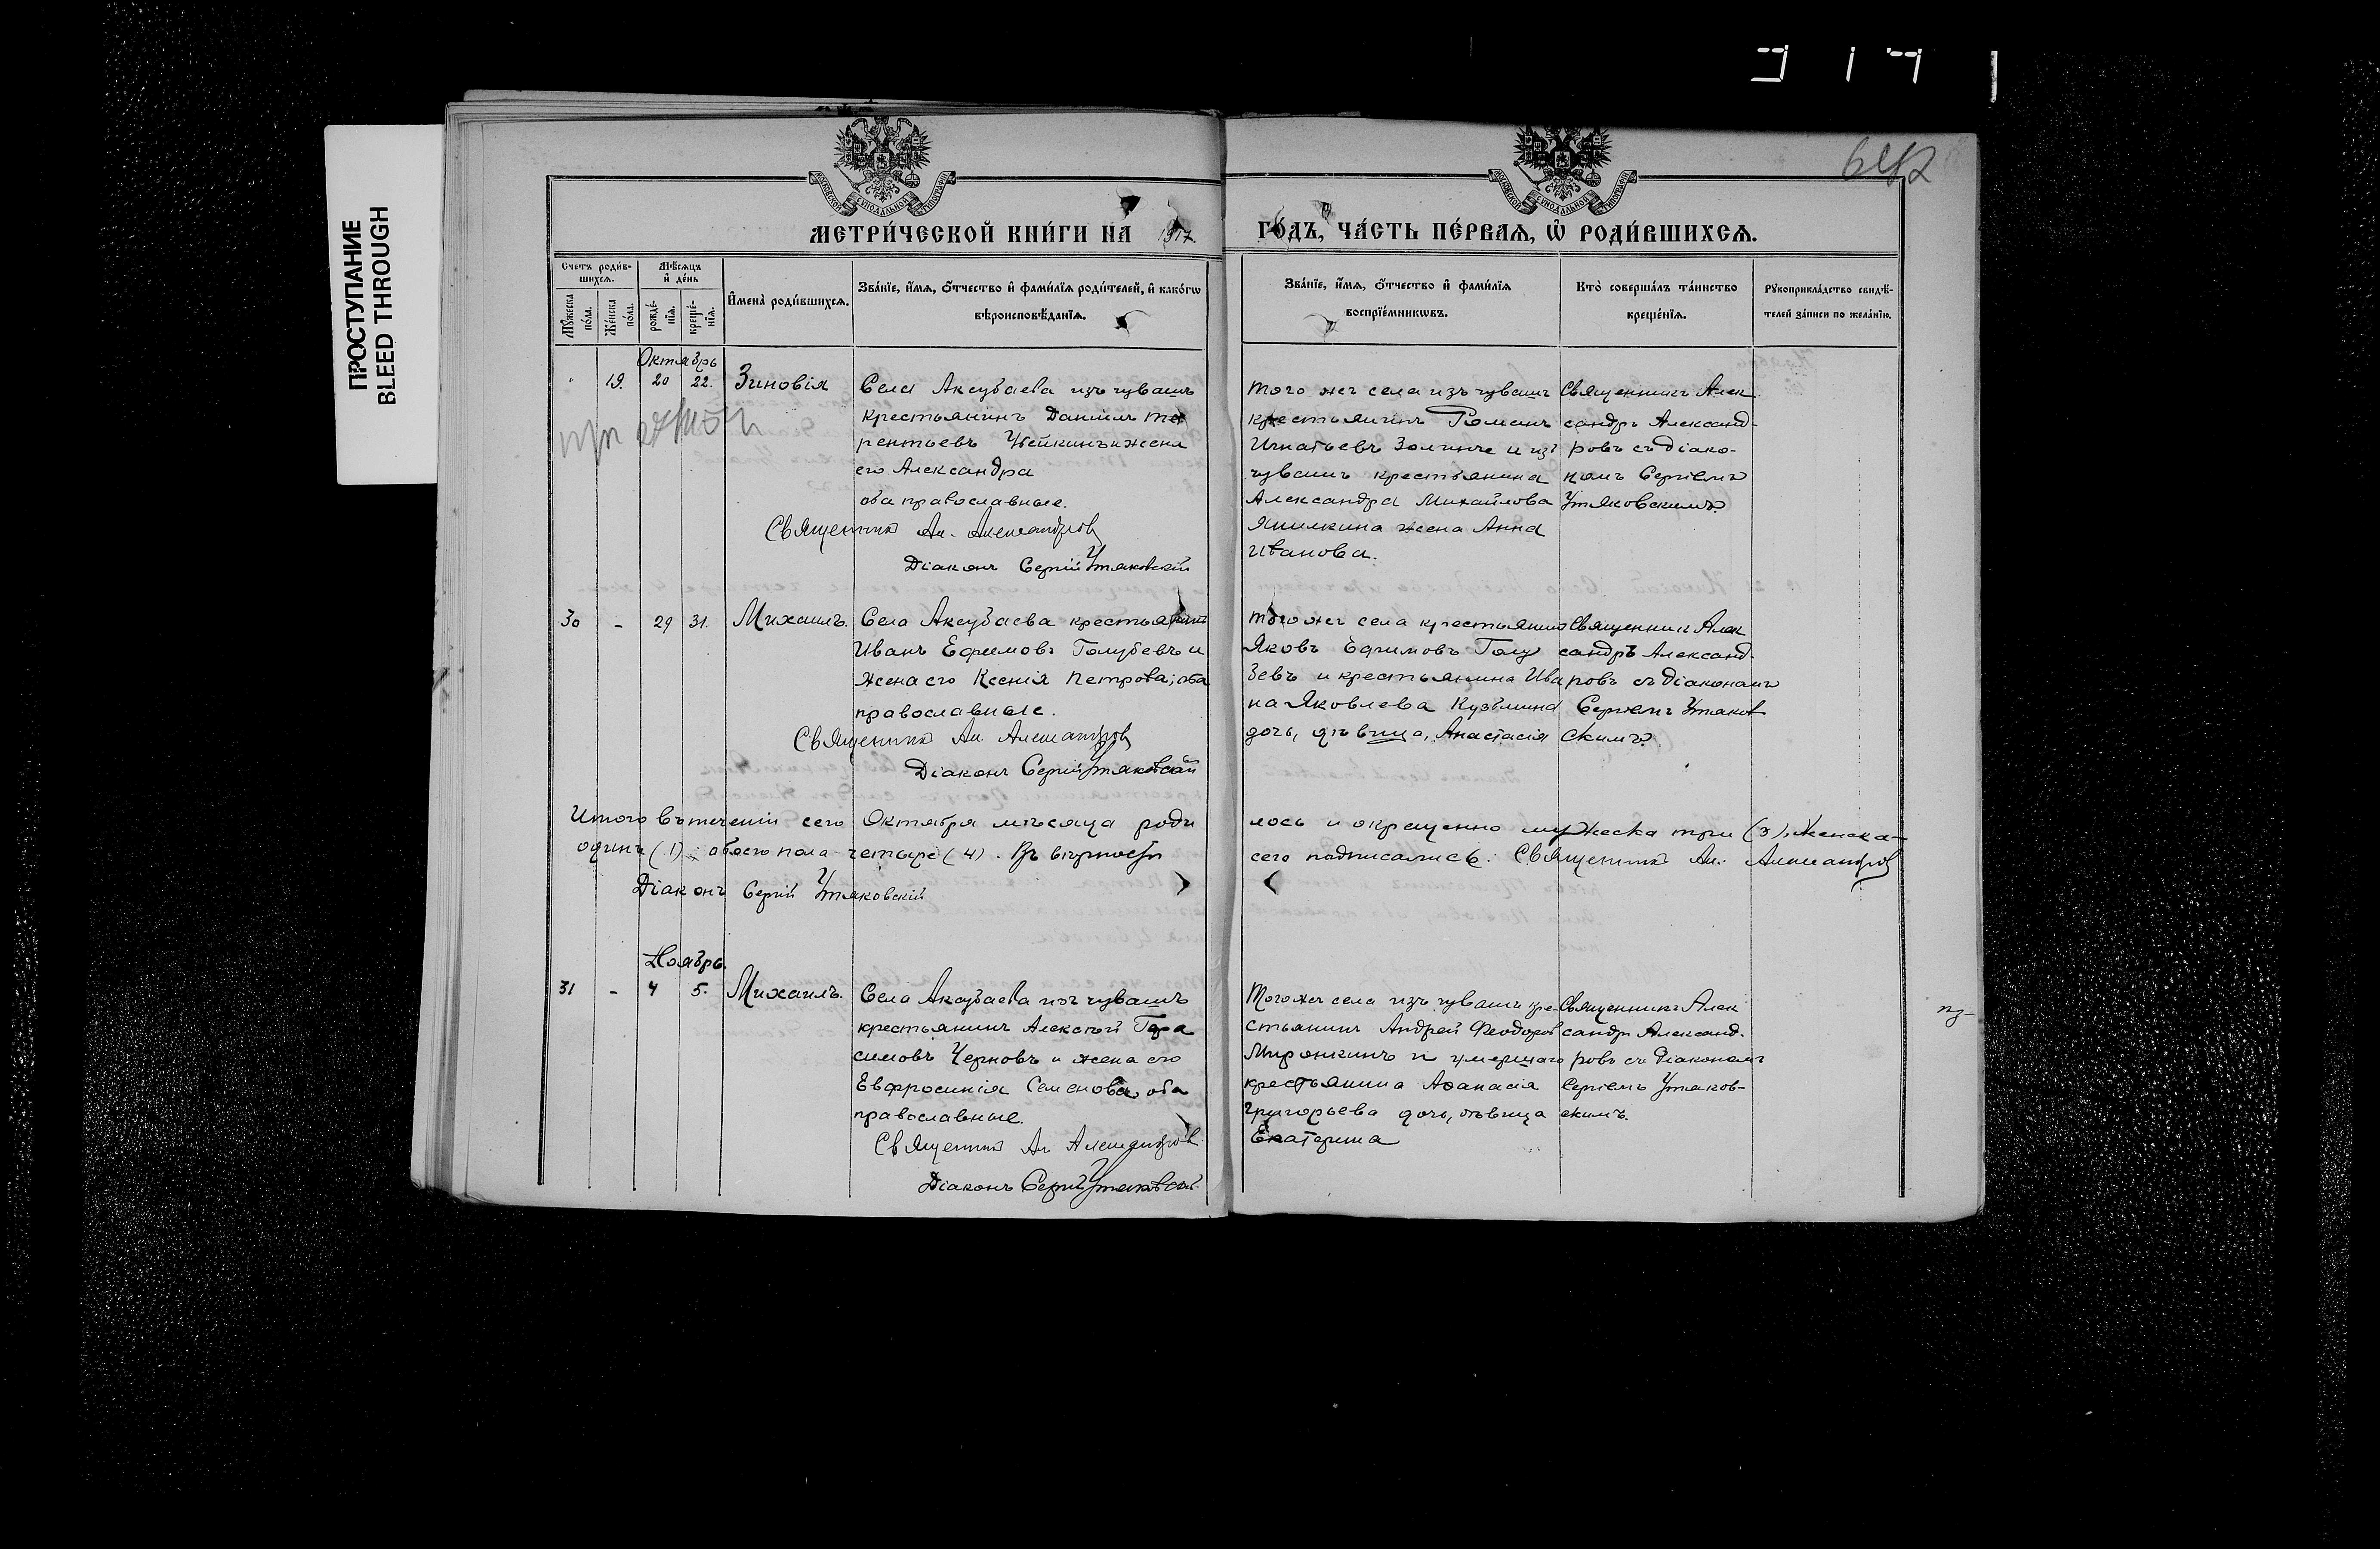 ПРОСТУПАНИЕ
BLEED THROUGH
МЕТРИ́ЧЕСКОЙ КНИ́ГИ НА 1917
ГО́ДЪ, ЧА́СТЬ ПЕ́РВАѦ, Ѡ҆ РОДИ́ВШИХСѦ.
Счетъ роди́в-
шихсѧ.
Мꙋ́жеска по́ла.
Же́нска по́ла.
Мѣ́сѧцъ и҆ де́нь
рожде́-
нїѧ.
креще́-
нїѧ.
И҆мена̀ роди́вшихсѧ.
Зва́нїе, и҆́мѧ, ѻ҆́тчество и҆ фами́лїѧ роди́телей, и҆ како́гѡ
вѣроисповѣ́данїѧ.
Зва́нїе, и҆́мѧ, ѻ҆́тчество и҆ фами́лїѧ
воспрїе́мникѡвъ.
Кто̀ соверша́лъ та́инство
креще́нїѧ.
Рꙋкоприкла́дство свидѣ́-
телей за́писи по жела́нїю.
Октябрь
19. 20 22. Зиновія
Села Аксубаева изъ чувашъ
крестьянинъ Даніилъ Те
рентьевъ и жена
его Александра
оба православные.
Священникъ Ал. Александровъ
Діаконъ Сергій Утяковскій
того же села изъ чувашъ
крестьянинъ Романъ
Игнатьевъ и изъ
чувашъ крестьянина
Александра Михайлова
жена Анна
Иванова.
Священникъ Алек
сандръ Александ-
ровъ съ діако-
номъ Сергіемъ
Утяковскимъ.
30 - 29 31. Михаилъ.
Села Аксубаева крестьянинъ
Иванъ Ефимовъ Голубевъ и
жена его Ксенія Петрова; оба
православные.
Священникъ Ал Александровъ
Діаконъ Сергій Утяковскій
того же села крестьянинъ
Яковъ Ефимовъ Голу
бевъ и крестьянина Ива
на Яковлева Кузьмина
дочь, дѣвица, Анастасія
Священникъ Алек
сандръ Александ-
ровъ съ діакономъ
Сергіемъ Утяков
скимъ.
Итого въ теченіи сего Октября мѣсяца роди
лось и окрещенно мужеска три (3), женска-
одинъ (1), обоего пола четыре (4). Въ вѣрности
сего подписались: Священникъ Ал. Александровъ
Діаконъ Сергій Утяковскій
Ноябрь.
31 - 4 5. Михаилъ.
Села Аксубаева изъ чувашъ
крестьянинъ Алексѣй Гера
симовъ Черновъ и жена его
Евфросинія Семенова, оба
православные.
Священникъ Ал Александровъ
Діаконъ Сергій Утяковскій
Того же села изъ чувашъ кре-
стьянинъ Андрей Феодоровъ
Миронкинъ и умершаго
крестьянина Аѳанасія
Григорьева дочь, дѣвица
Екатерина
Священникъ Алек
сандръ Александ-
ровъ съ діакономъ
Сергіемъ Утяков-
скимъ.